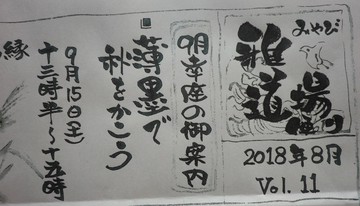 みやび
雅道場便り
2018年8月
Vol. 11
明幸座の御案内
薄墨で
秋をかこう
9月15日(土)
十三時半〜十五時
縁